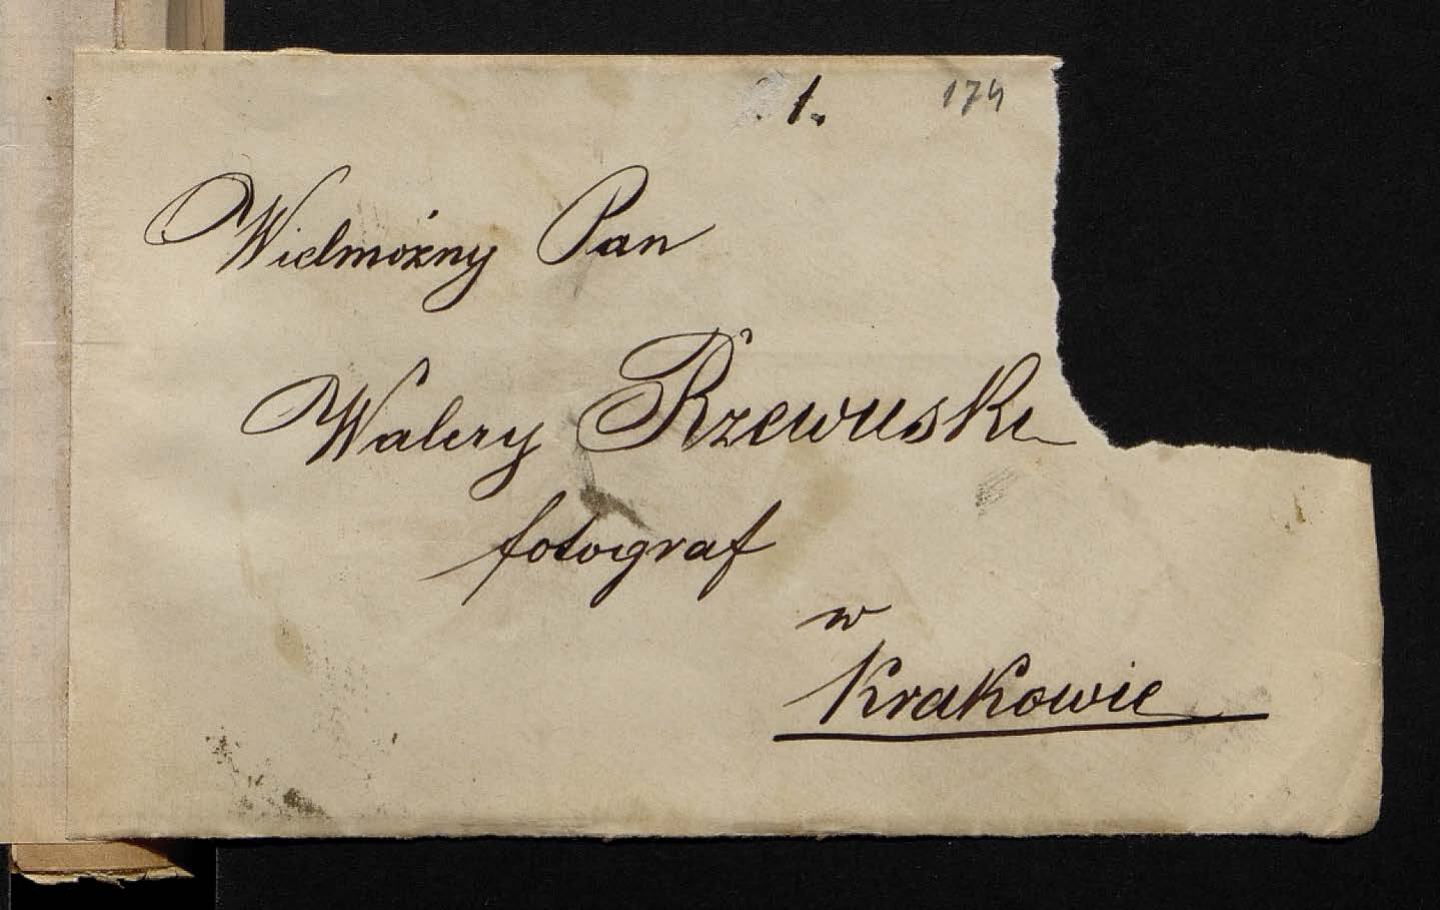 1. 174
Wielmożny Pan
Walery Rzewuski
fotograf
w
Krakowie